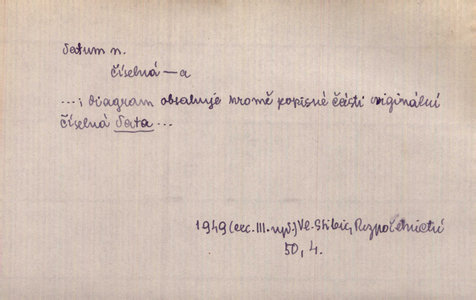 datum n.
číselná — a
...; diagram obsahuje kromě popisné části originální
číselná data...
1949 (exc. III. vyd.) Vl. Stibic, Rozpočetnictví
50, 4.